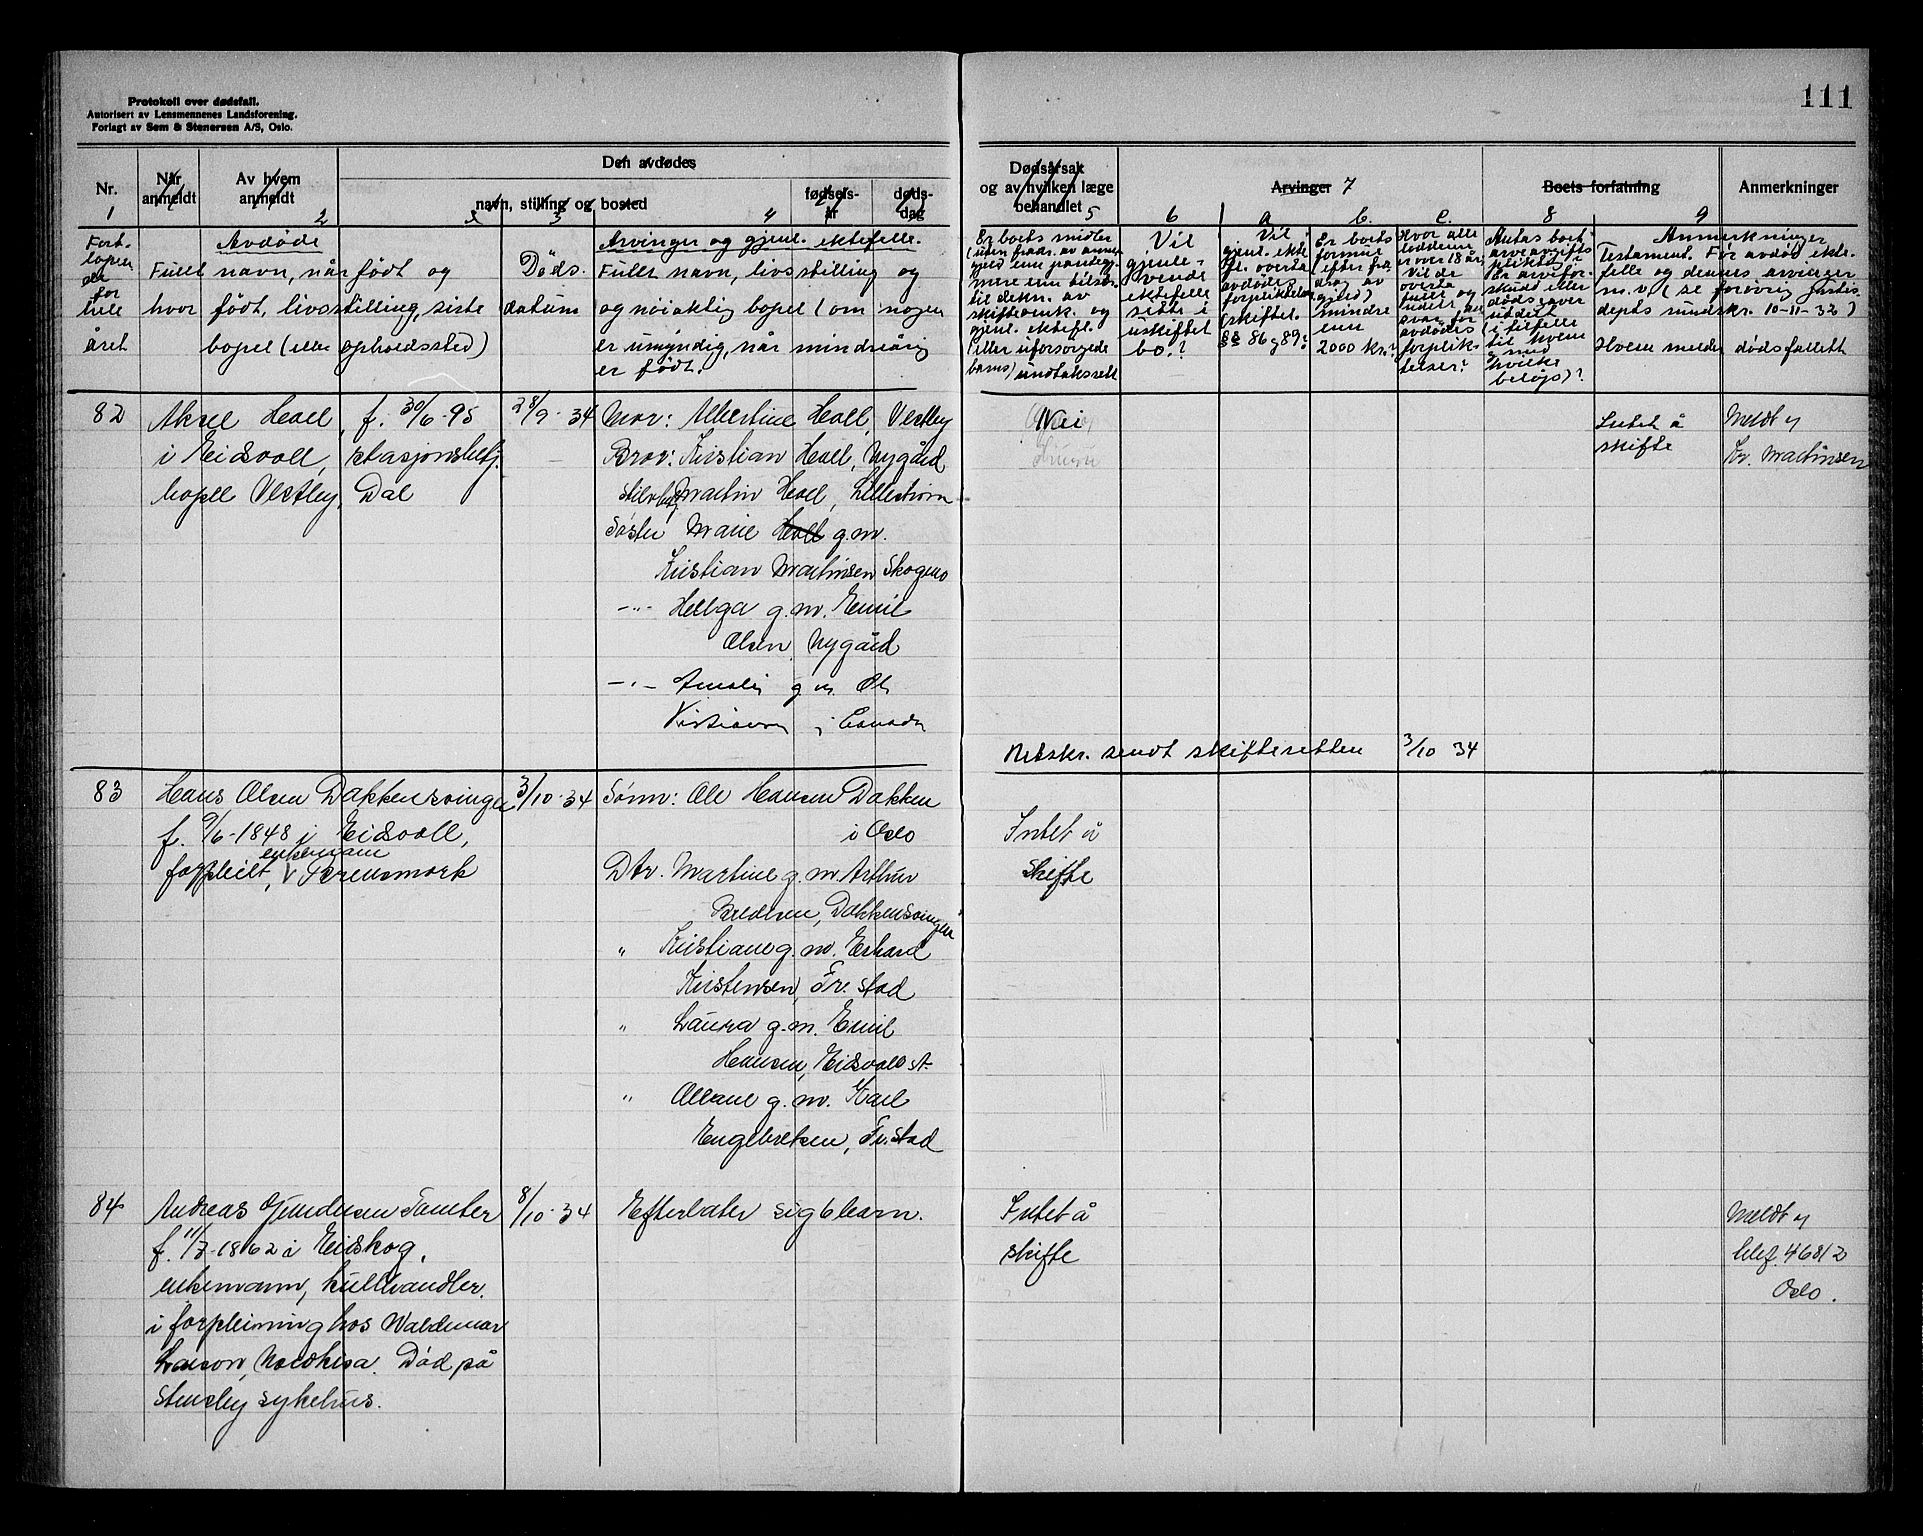 Protokoll over dødsfall.
Autorisert av Lensmennenes Landsforening.
Forlagt av Sem & Stenersen A/S, Oslo.
111
Nr.
Når anmeldt
Av hvem anmeldt
Den avdødes
navn, stilling og bosted
fødsels-år
døds-dag
Dødsårsak
og av hvilken læge
behandlet
Arvinger
Boets forfatning
Anmerkninger
1 2 3 4 5 6 7 a b. c. 8 9
Fort-
løpen
de
for
hele
året
Avdøde
Fullt navn, når født og
hvor født, livsstilling, siste
bopel (eller opholdssted)
Døds.
datum
Arvinger og gjenl. ektefelle.
Fullt navn, livsstilling og
og nøiaktig bopel (om nogen
er umyndig, når mindreårig
er født.
Er boets midler
(uten fradr. av annen
gjeld enn pantegj.
mere enn tilstr.
til dekn. av
skifteomk. og
gjenl. ektef.
(eller uforsørgede
barns) undtaksrett
Vil
gjenle-
vende
ektefelle
sitte i
uskiftet
bo.?
Vil
gjenl. ekte
f. overta
avdødes
forpliktelser
(skiftel.
§§ 86 og 89?
Er boets
formue
(efter fra
drag av
gjeld)
mindre
enn
2000 kr.?
Hvor alle
loddeiere
er over 18 år
Vil de
overta
fullt og
udelt an
svar for
avdødes
forplik-
telser?
Antas boet
arveavgifts
pliktig i
Er arvefor-
skudd eller
dødsgaver
uddelt
(i tilfelle
til hvem
og med
hvilke
beløp)?
Anmerkninger
Testament. For avdød ekte-
felle og dennes arvinger
m.v. (se forøvrig justis-
depts rundskr. 10-11-32)
Hvem melder dødsfallet
82
Aksel Holl, f. 30/6-95
i Eidsvoll, stasjonsbetj.
bopel Vestby, Dal
28/9-34
Mor: Albertine Holl, Vestby
Bror: Kristian Holl, Nygård
Martin Holl, Lillestrøm
Søster Marie Holl g.m.
Kristian Martinsen Skogmo
-"- Helga g.m. Emil
Olsen, Nygård
-"- Amalie g.m. Ole
Kristiansen i Canada
Nei
Intet å
skifte
Meldt av
Kr. Martinsen
Utskr. sendt skifteretten 3/10 34
83
Hans Olsen Dokkensvingen
f. 9/6-1848 i Eidsvoll,
enkemann
forpleiet, V Prensmork
3/10-34
Sønn: Ole Hansen Dokken
i Oslo
Dtr. Martine g.m. Arthur
Bredesen, Dokkensvingen
" Kristiane g.m. Erhard
Kristensen, Fr.stad
" Laura g.m. Emil
Hansen, Eidsvoll st.
" Oleane g.m. Karl
Engebretsen, Fr.stad
Intet å
skifte
84
Andreas Gundersen Tomter
f. 11/7-1862 i Eidskog,
enkemann, kullhandler.
i forpleining hos Waldemar
Larson, Nordkisa. Død på
Stensby sykehus.
8/10-34
Efterlater sig 6 barn.
Intet å
skifte
Meldt av
telef. 46812
Oslo.